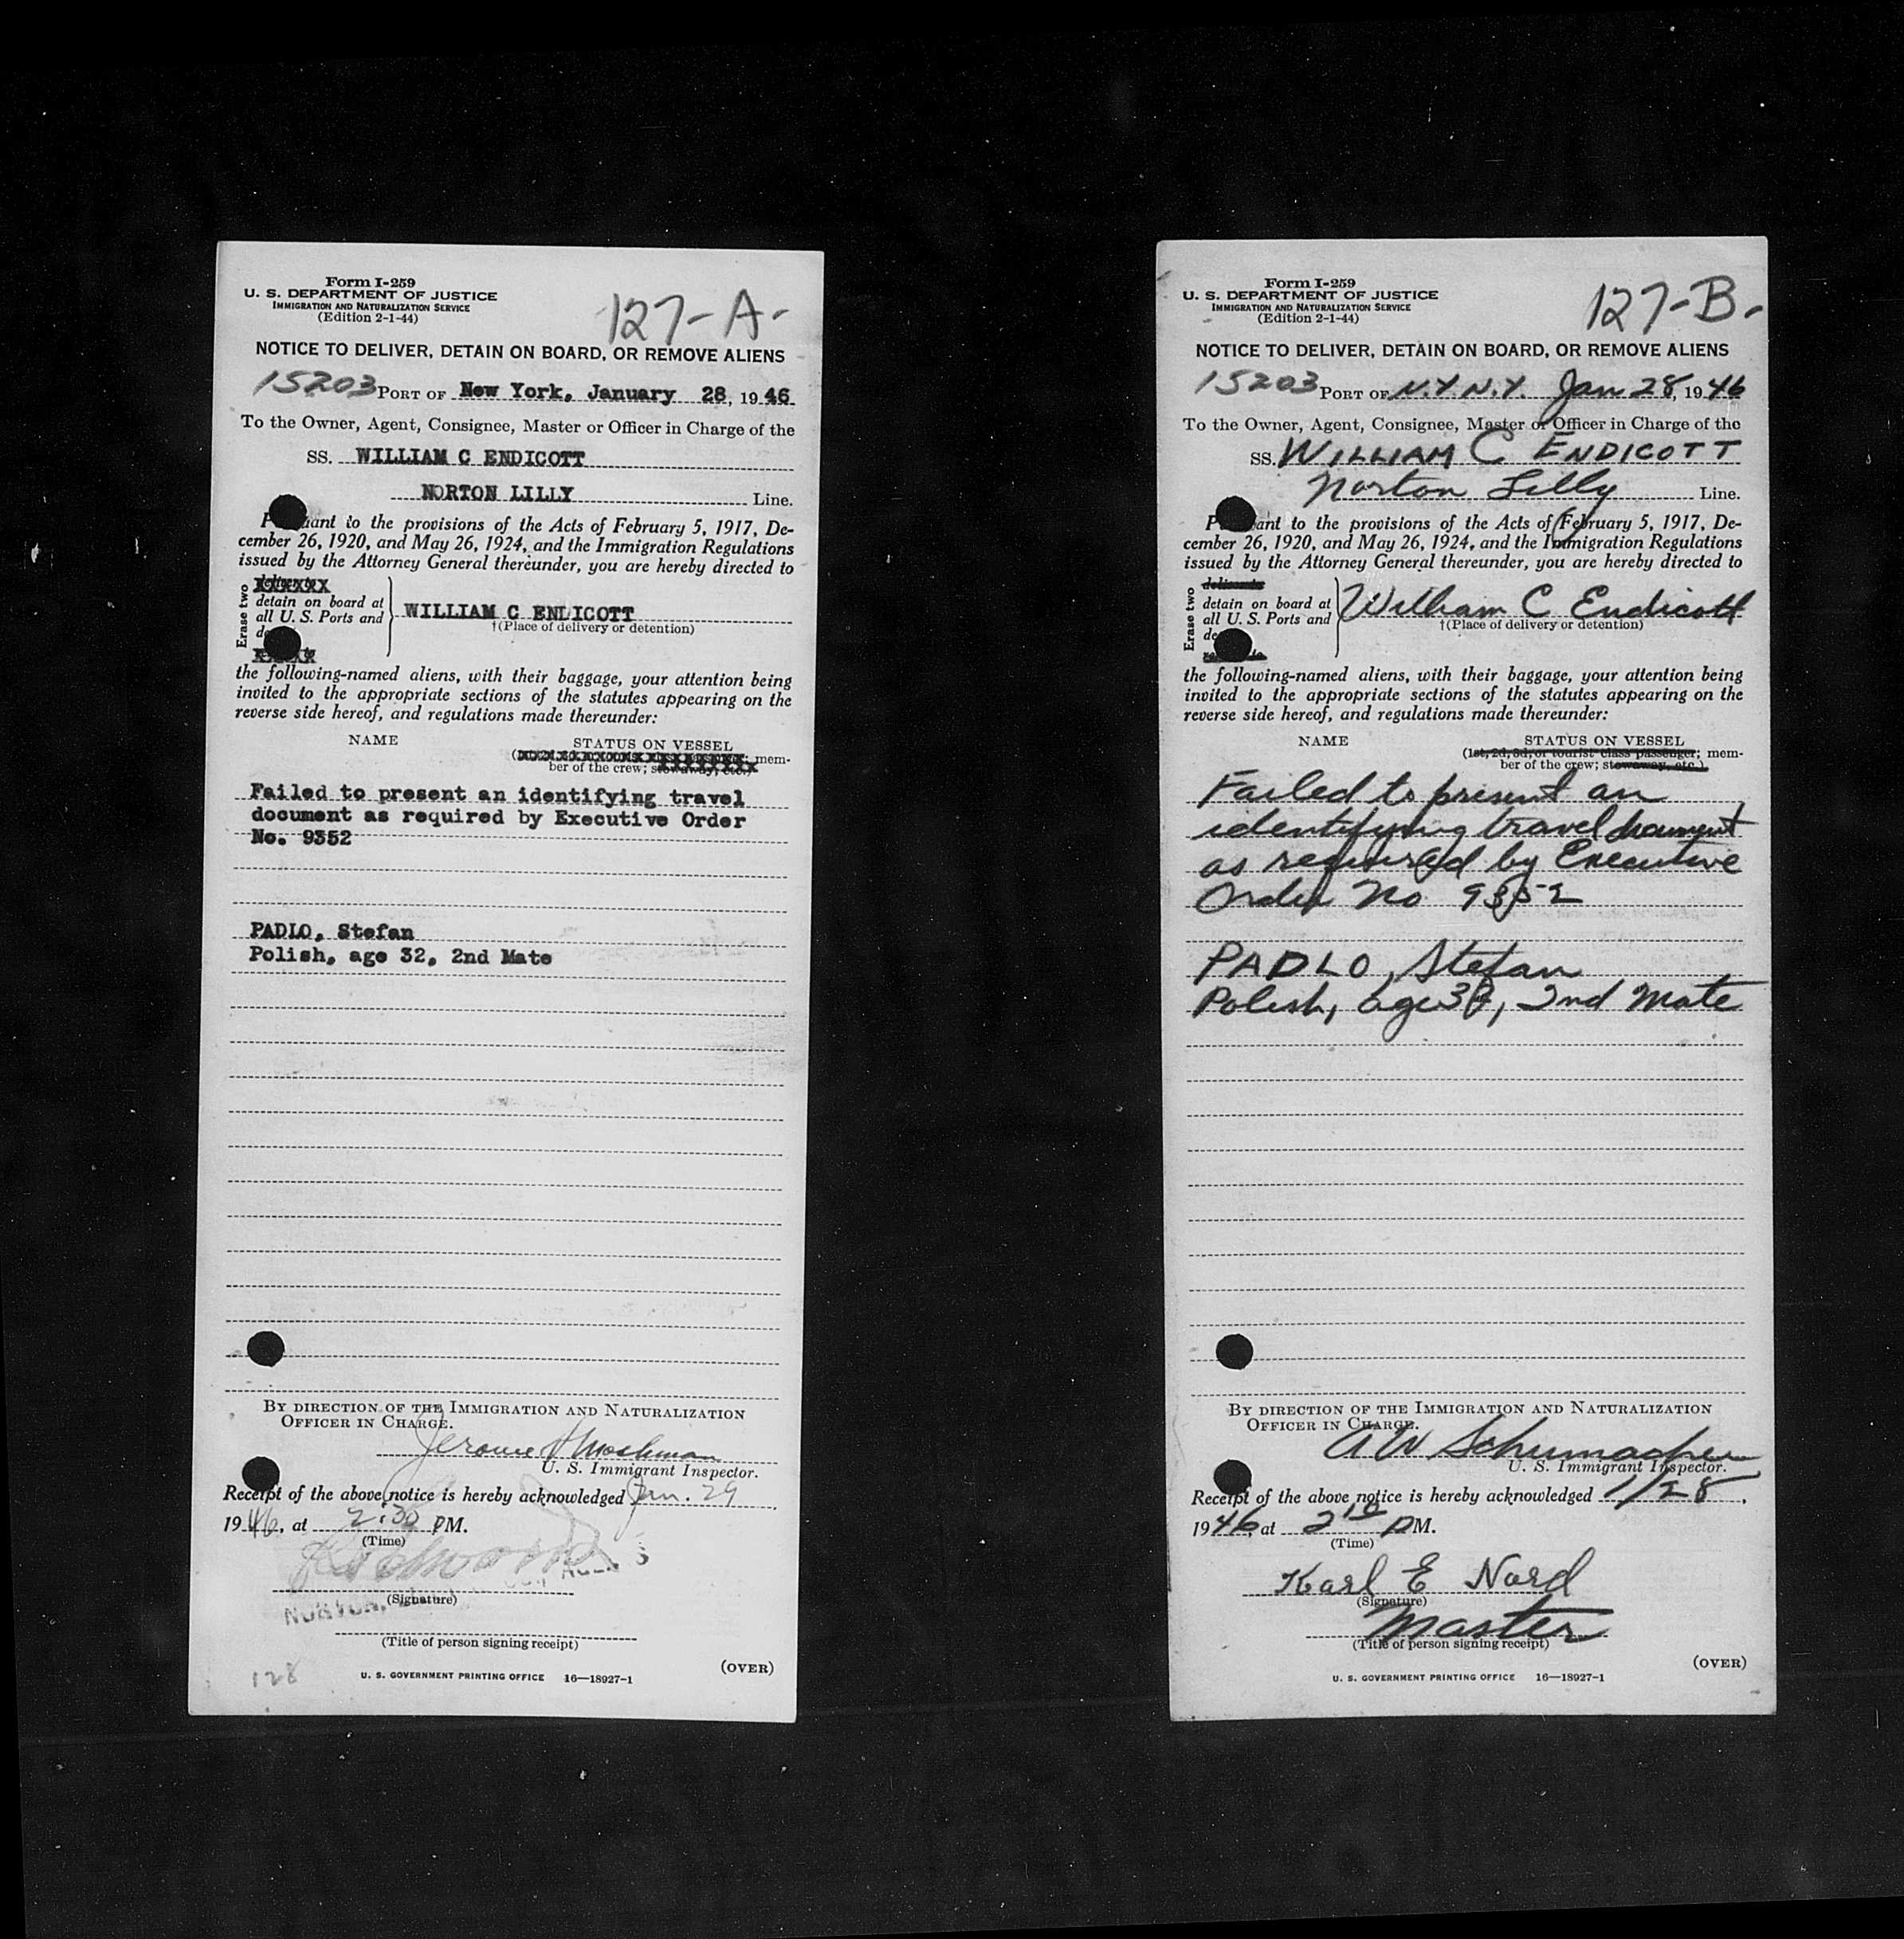 Form I-259
U. S. DEPARTMENT OF JUSTICE
IMMIGRATION AND NATURALIZATION SERVICE
(Edition 2-1-44)
127-A-
NOTICE TO DELIVER, DETAIN ON BOARD, OR REMOVE ALIENS
15203 PORT OF New York, January 28, 1946
To the Owner, Agent, Consignee, Master or Officer in Charge of the
SS. WILLIAM C ENDICOTT
NORTON LILLY Line.
Pursuant to the provisions of the Acts of February 5, 1917, De-
cember 26, 1920, and May 26, 1924, and the Immigration Regulations
issued by the Attorney General thereunder, you are hereby directed to
Erase two
detain on board at
all U. S. Ports and
WILLIAM C ENDICOTT
†(Place of delivery or detention)
the following-named aliens, with their baggage, your attention being
invited to the appropriate sections of the statutes appearing on the
reverse side hereof, and regulations made thereunder:
NAME STATUS ON VESSEL
mem-
ber of the crew; stowaway, etc.)
Failed to present an identifying travel
document as required by Executive Order
No. 9352
PADLO, Stefan
Polish, age 32, 2nd Mate
BY DIRECTION OF THE IMMIGRATION AND NATURALIZATION
OFFICER IN CHARGE.
Jerome
U. S. Immigrant Inspector.
Receipt of the above notice is hereby acknowledged Jan. 29,
1946, at 2:30 PM.
(Time)
(Signature)
NORTON,
(Title of person signing receipt)
128
U. S. GOVERNMENT PRINTING OFFICE 16—18927-1
(OVER)
Form I-259
U. S. DEPARTMENT OF JUSTICE
IMMIGRATION AND NATURALIZATION SERVICE
(Edition 2-1-44)
127-B-
NOTICE TO DELIVER, DETAIN ON BOARD, OR REMOVE ALIENS
15203 PORT OF N.Y. N.Y. Jan 28, 1946
To the Owner, Agent, Consignee, Master or Officer in Charge of the
SS. WILLIAM C ENDICOTT
Norton Lilly Line.
Pursuant to the provisions of the Acts of February 5, 1917, De-
cember 26, 1920, and May 26, 1924, and the Immigration Regulations
issued by the Attorney General thereunder, you are hereby directed to
Erase two
deliver to
detain on board at
all U. S. Ports and
William C Endicott
†(Place of delivery or detention)
the following-named aliens, with their baggage, your attention being
invited to the appropriate sections of the statutes appearing on the
reverse side hereof, and regulations made thereunder:
NAME STATUS ON VESSEL
(1st, 2d, 3d, or tourist class passenger; mem-
ber of the crew; stowaway, etc.)
Failed to present an
identifying travel document
as required by Executive
Order No 9352
PADLO, Stefan
Polish, age 32, 2nd Mate
BY DIRECTION OF THE IMMIGRATION AND NATURALIZATION
OFFICER IN CHARGE.
A W Schumacher
U. S. Immigrant Inspector.
Receipt of the above notice is hereby acknowledged 1/28,
1946, at 2 10 PM.
(Time)
Karl E Nord
(Signature)
Master
(Title of person signing receipt)
U. S. GOVERNMENT PRINTING OFFICE 16—18927-1
(OVER)